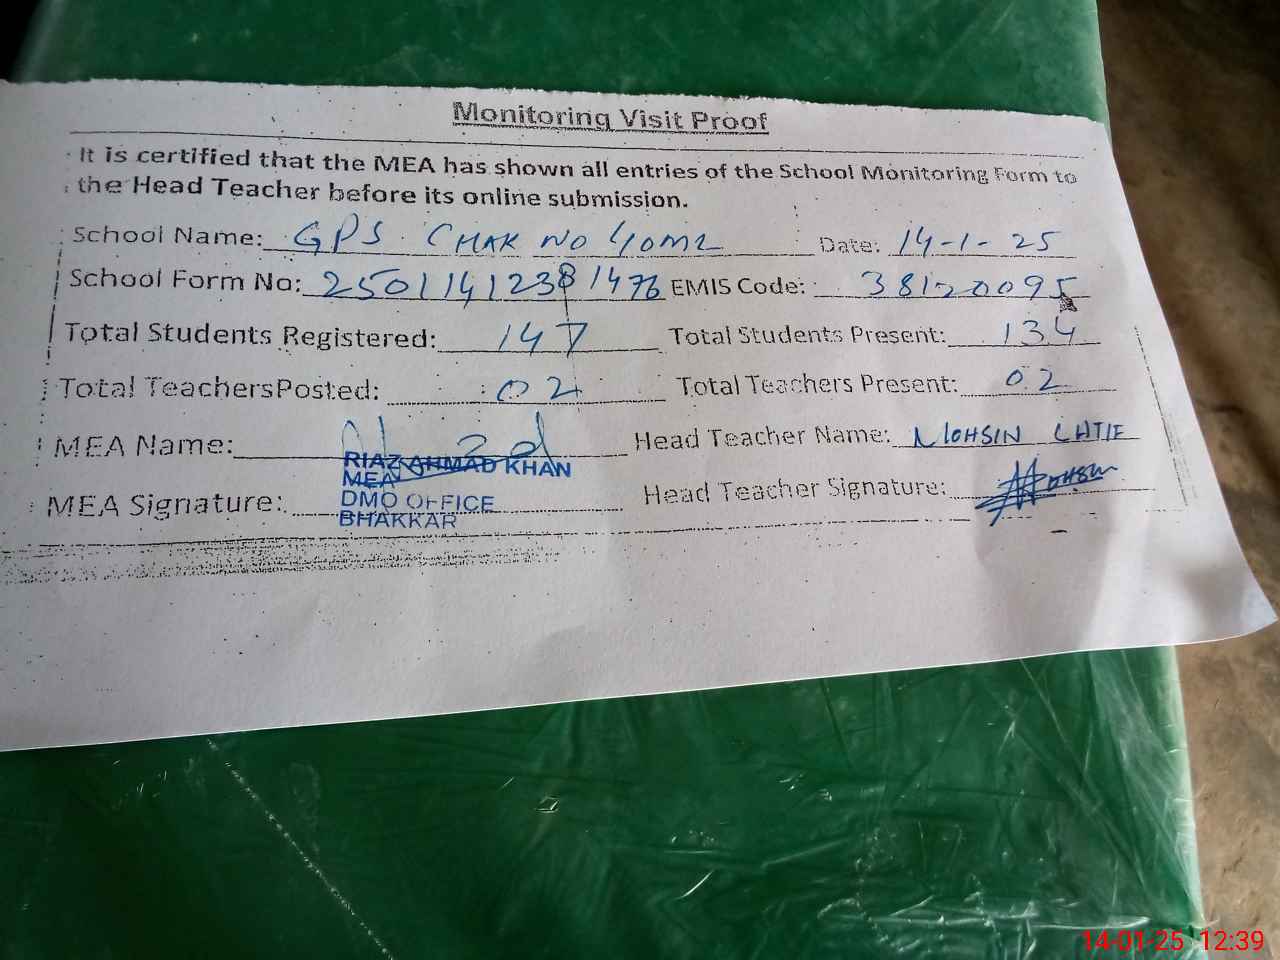 Monitoring Visit Proof
It is certified that the MEA has shown all entries of the School Monitoring Form to
the Head Teacher before its online submission.
School Name: GPS CHAK NO 40ML Date: 14-1-25
School Form No: 25011412381476 EMIS Code: 38120095
Total Students Registered: 147 Total Students Present: 134
Total TeachersPosted: 02 Total Teachers Present: 02
MEA Name: Head Teacher Name: MOHSIN LATIF
RIAZ AHMAD KHAN
MEA
MEA Signature: Head Teacher Signature: Mohsin
DMO OFFICE
BHAKKAR
14-01-25 12:39